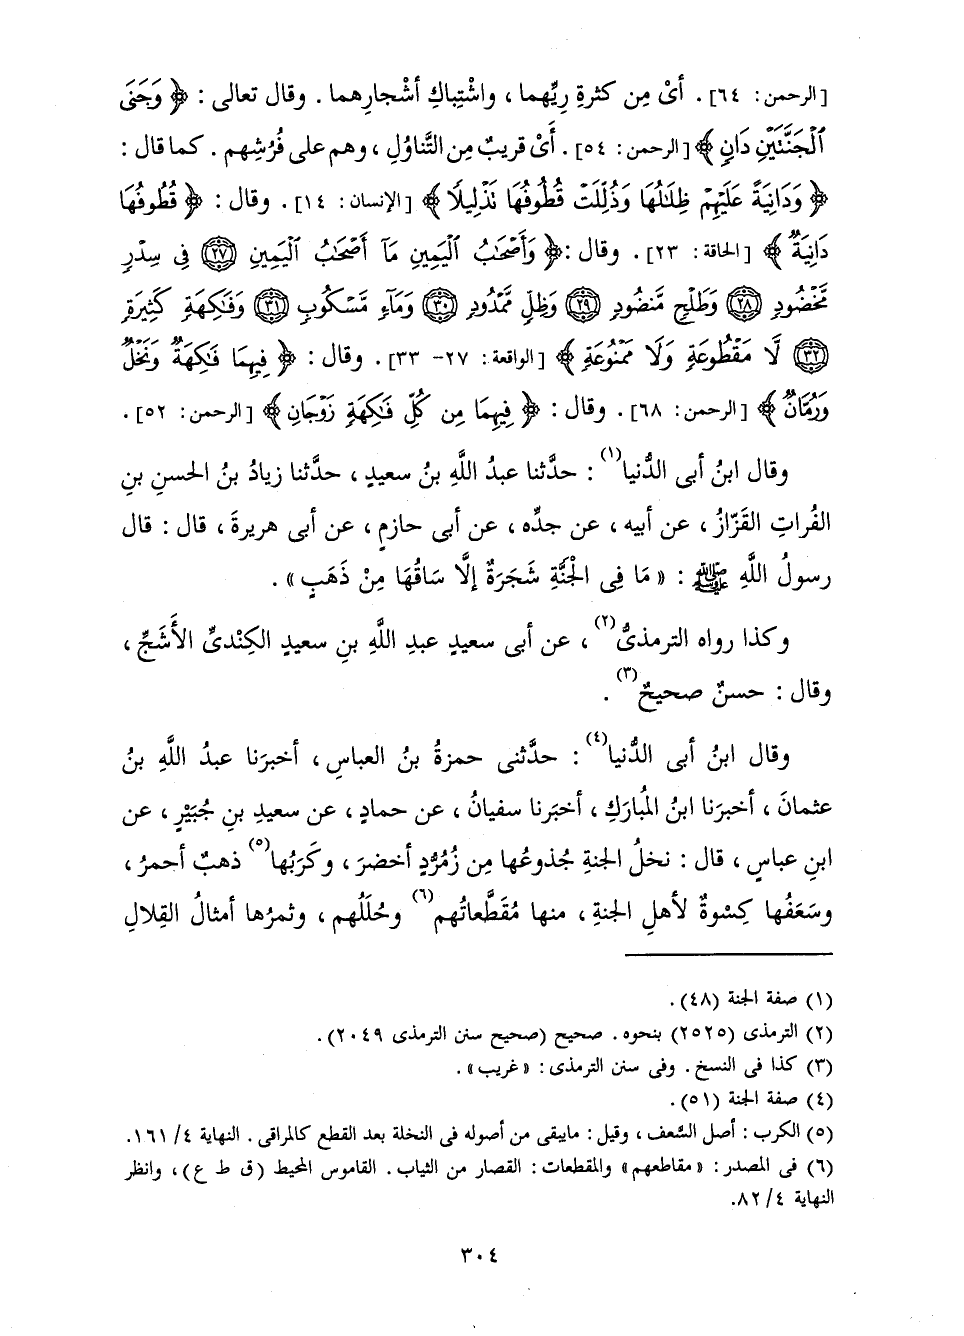 [الرحمن: ٦٤]. أىْ مِن كثرةِ رِيِّهما، واشْتِباكِ أشْجارِهما. وقال تعالى: ﴿وَجَنَى
ٱلْجَنَّتَيْنِ دَانٍ﴾ [الرحمن: ٥٤]. أَىْ قريبٌ مِن التَّناوُلِ، وهم على فُرُشِهم. كما قال:
﴿وَدَانِيَةً عَلَيْهِمْ ظِلَٰلُهَا وَذُلِّلَتْ قُطُوفُهَا تَذْلِيلًا﴾ [الإنسان: ١٤]. وقال: ﴿قُطُوفُهَا
دَانِيَةٌ﴾ [الحاقة: ٢٣]. وقال: ﴿وَأَصْحَٰبُ ٱلْيَمِينِ مَآ أَصْحَٰبُ ٱلْيَمِينِ ۝٢٧ فِى سِدْرٍ
مَّخْضُودٍ ۝٢٨ وَطَلْحٍ مَّنضُودٍ ۝٢٩ وَظِلٍّ مَّمْدُودٍ ۝٣٠ وَمَآءٍ مَّسْكُوبٍ ۝٣١ وَفَٰكِهَةٍ كَثِيرَةٍ
۝٣٢ لَّا مَقْطُوعَةٍ وَلَا مَمْنُوعَةٍ﴾ [الواقعة: ٢٧- ٣٣]. وقال: ﴿فِيهِمَا فَٰكِهَةٌ وَنَخْلٌ
وَرُمَّانٌ﴾ [الرحمن: ٦٨]. وقال: ﴿فِيهِمَا مِن كُلِّ فَٰكِهَةٍ زَوْجَانِ﴾ [الرحمن: ٥٢].
وقال ابنُ أبى الدُّنيا(١): حدَّثنا عبدُ اللَّهِ بنُ سعيدٍ، حدَّثنا زيادُ بنُ الحسنِ بنِ
الفُراتِ القَزّازُ، عن أبيه، عن جدِّه، عن أبى حازمٍ، عن أبى هريرةَ، قال: قال
رسولُ اللَّهِ ﷺ: «مَا فِى الجَنَّةِ شَجَرَةٌ إلَّا سَاقُهَا مِنْ ذَهَبٍ».
وكذا رواه الترمذىُّ(٢)، عن أبى سعيدٍ عبدِ اللَّهِ بنِ سعيدٍ الكِنْدىِّ الأَشَجِّ،
وقال: حسنٌ صحيحٌ(٣).
وقال ابنُ أبى الدُّنيا(٤): حدَّثنى حمزةُ بنُ العباسِ، أخبرَنا عبدُ اللَّهِ بنُ
عثمانَ، أخبَرَنا ابنُ المُبارَكِ، أخبَرنا سفيانُ، عن حمادٍ، عن سعيدِ بنِ جُبَيْرٍ، عن
ابنِ عباسٍ، قال: نخلُ الجنةِ جُذوعُها مِن زُمُرُّدٍ أخضرَ، وكَرَبُها(٥) ذهبٌ أحمرُ،
وسَعَفُها كِسْوةٌ لأهلِ الجنةِ، منها مُقَطَّعاتُهم(٦) وحُلَلُهم، وثمرُها أمثالُ القِلالِ
(١) صفة الجنة (٤٨).
(٢) الترمذى (٢٥٢٥) بنحوه. صحيح (صحيح سنن الترمذى ٢٠٤٩).
(٣) كذا فى النسخ. وفى سنن الترمذى: «غريب».
(٤) صفة الجنة (٥١).
(٥) الكرب: أصل السَّعف، وقيل: مايبقى من أصوله فى النخلة بعد القطع كالمراقى. النهاية ٤/ ١٦١.
(٦) فى المصدر: «مقاطعهم» والمقطعات: القصار من الثياب. القاموس المحيط (ق ط ع)، وانظر
النهاية ٤/ ٨٢.
٣٠٤